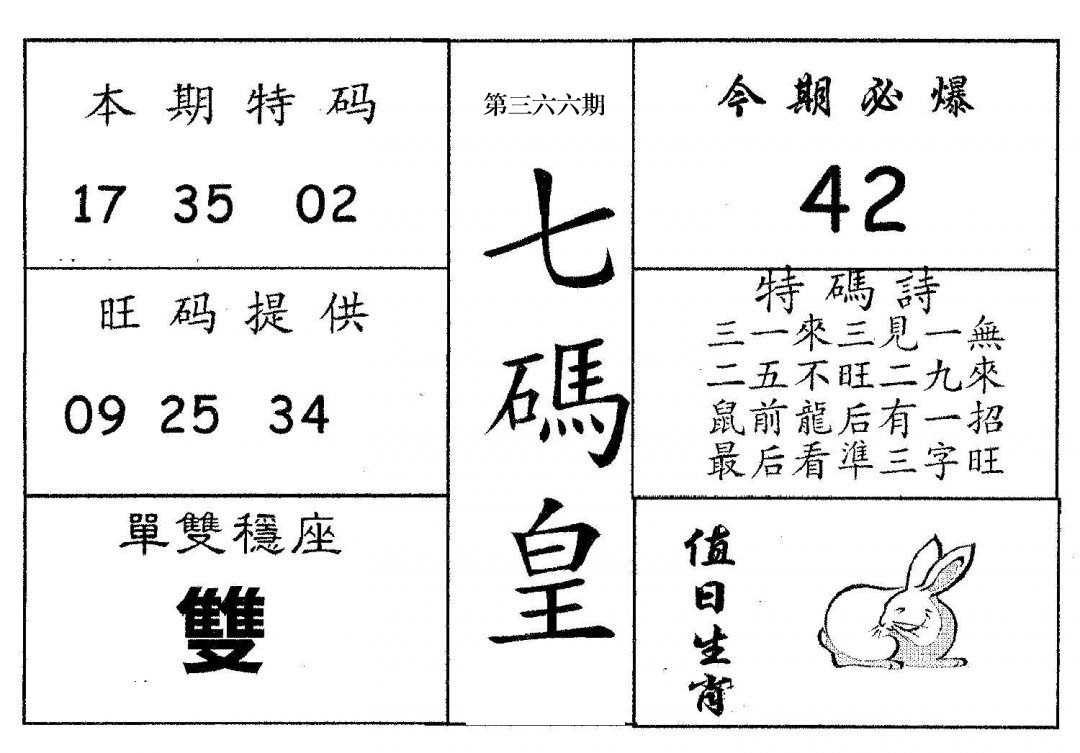 本期特码
17 35 02
旺码提供
09 25 34
單雙穩座
雙
第三六六期
七碼皇
今期必爆
42
特碼詩
三一來三見一無
二五不旺二九來
鼠前龍后有一招
最后看準三字旺
值日生肖